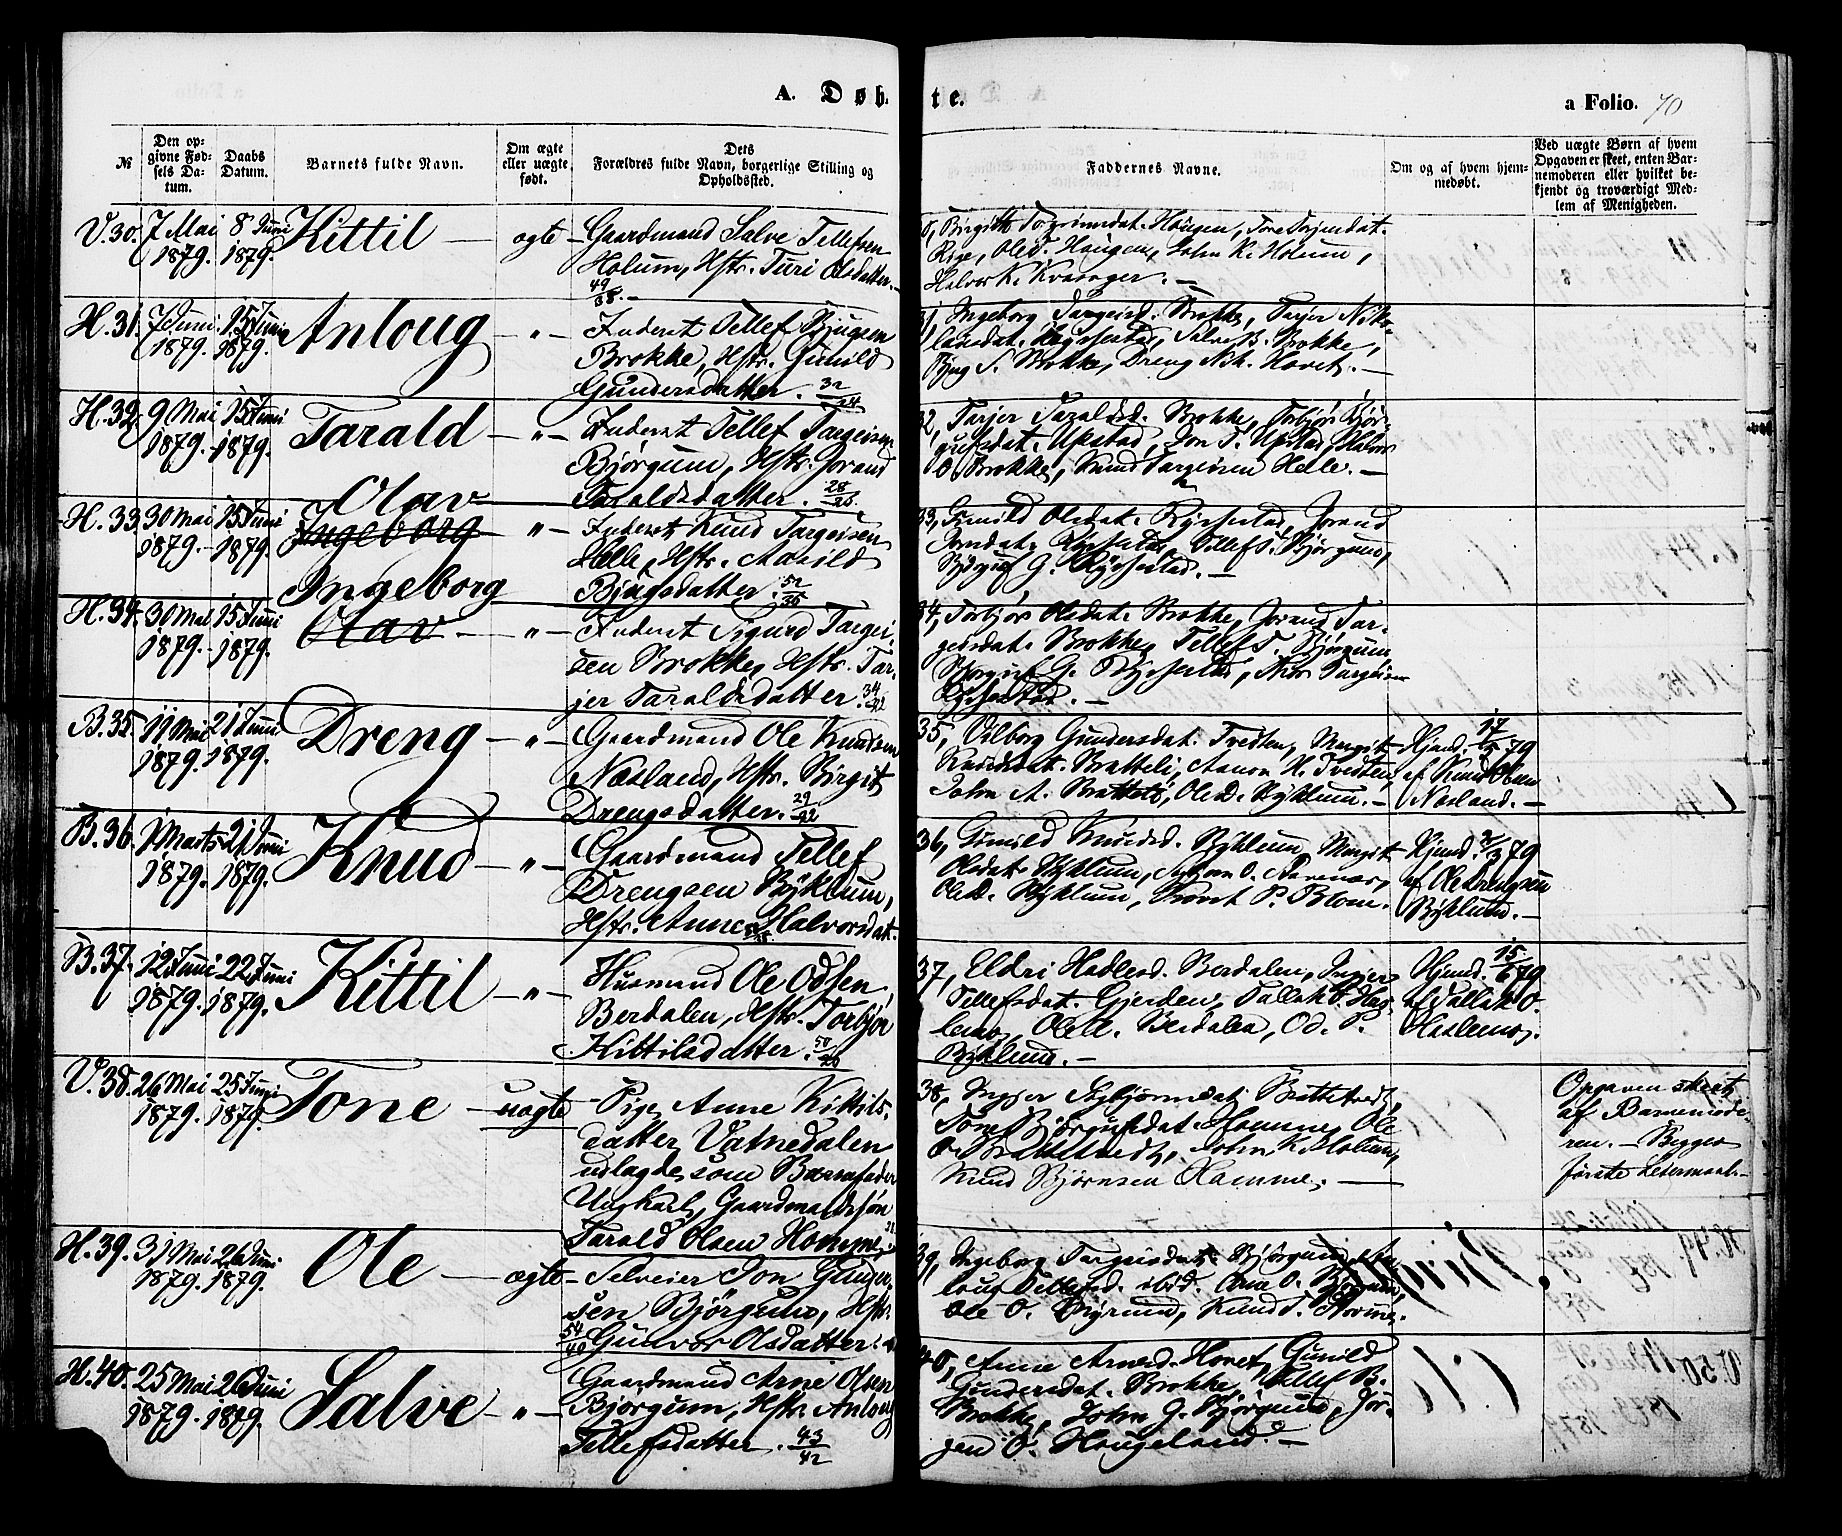 A. Døbte.
a Folio. 70
№
Den opgivne Fødsels Datum.
Daabs Datum.
Barnets fulde Navn.
Om ægte eller uægte født.
Dets Forældres fulde Navn, borgerlige Stilling og Opholdssted.
Faddernes Navne.
Om og af hvem hjemmedøbt.
Ved uægte Børn af hvem Opgaven er skeet, enten Barnemoderen eller hvilket bekjendt og troværdigt Medlem af Menigheden.
V. 30. 7 Mai 1879. 8 Juni 1879. Kittil — ægte —
Gaardmand Salve Tellefsen
Holum, Hstr. Turi Olsdatter.
49/38. —
Birgitte Torgrimsdat. Haugen, Tone Torjusdat.
Rige, Ole T. Haugen, John K. Holum,
Halvor K. Kvasager. —
H. 31. 7 Juni 1879. 15 Juni 1879. Anloug — " —
Inderst Tellef Bjugsen
Brokke, Hstr. Gunild
Gundersdatter. 32/24
31, Ingeborg Targeisd. Brokke, Tarjer Niko-
laisdat. Rysestad, Salve B. Brokke,
Bjug S. Brokke, Dreng Hovet. —
H. 32. 9 Mai 1879. 15 Juni 1879. Tarald — " —
Inderst Tellef Targeisen
Bjørgum, Hstr. Jorand
Taraldsdatter. 28/26.
32, Tarjer Taraldsd. Brokke, Torbjør Bjør-
gufsdat. Upstad, Jon T. Upstad, Halvor
O. Brokke, Knud Targeisen Helle. —
H. 33. 30 Mai 1879. 15 Juni 1879. Olav
Ingeborg — " —
Inderst Knud Targeisen
Helle, Hstr. Aasild
Bjugsdatter. 52/36
33, Gunild Olsdat. Rysestad, Jorand
Jonsdat. Rysestad, Tellef T. Bjørgum,
Bjørguf G. Rysestad. —
H. 34. 30 Mai 1879. 15 Juni 1879. Ingeborg
Olav — " —
Inderst Sigurd Targei-
sen Brokke, Hstr. Tar-
jer Taraldsdatter. 34/22
34, Torbjør Olsdat. Brokke, Jorand Tar-
geisdat. Brokke, Tellef T. Bjørgum,
Bjørguf G. Rysestad, Targeisen
Rysestad. —
B. 35. 11 Mai 1879. 21 Juni 1879. Dreng — " —
Gaardmand Ole Knudsen
Næsland, Hstr. Birgit
Drengsdatter. 29/22
35, Vilborg Gundersdat. Tvedten, Margit
Knudsdat. Bratteli, Aanon H. Tvedten,
John A. Bratteli, Ole D. Byklum. —
Hjmd. 17/5 79
af Knud Olsen
Næsland. —
B. 36. 1 Marts 1879. 21 Juni 1879. Knud — " —
Gaardmand Tellef
Drengsen Byklum,
Hstr. Anne Halvorsdat.
36, Gunild Knudsd. Byklum, Margit
Olsdat. Byklum, O. Aarenæs,
Ole D. Byklum, Knut P. Blom.
Hjmd. 2/3 79
af Ole Drengsen
Byklum. —
B. 37. 12 Juni 1879. 22 Juni 1879. Kittil — " —
Husmand Ole Odsen
Berdalen, Hstr. Torbjør
Kittilsdatter. 50/26
37, Eldri Hadlesd. Berdalen, Ingjer
Tellefsdat. Gjerden, Tallak O. Has-
lemo, Ole Berdalen, Od. P.
Byklum. —
Hjmd. 15/6 79
af Tallak O.
Haslemo.
V. 38. 26 Mai 1879. 25 Juni 1879. Tone — uægte
Pige Anne Kittils-
datter Vatnedalen
udlagde som Barnefader
Ungkarl, Gaardmandssøn
Tarald Olsen Homme,
38, Ingjer Asbjørnsdat. Brottveit,
Tone Bjørgufsdat. Homme, Ole
O. Brottveit, John K. Holum,
Knud Bjørnsen Homme. —
Opgaven skeet
af Barnemode-
ren. — Begges
første Leiermaal. —
H. 39. 31 Mai 1879. 26 Juni 1879. Ole — ægte —
Selveier Jon Gunder-
sen Bjørgum, Hstr.
54/40 Gunvor Olsdatter.
39, Ingeborg Targeisdat. Bjørgum,
Tellefsd. ibid. O. Bjørgum,
Ole O. Myrum, Knud T. Homme.
H. 40. 25 Mai 1879. 26 Juni 1879. Salve — " —
Gaardmand Arne Olsen
Bjørgum, Hstr. Anloug
Tellefsdatter. 43/42
40, Anne Arnesd. Hovet, Gunild
Gundersdat. Brokke, Tellef B.
Brokke, John G. Bjørgum, Jør-
gen O. Haugeland. —